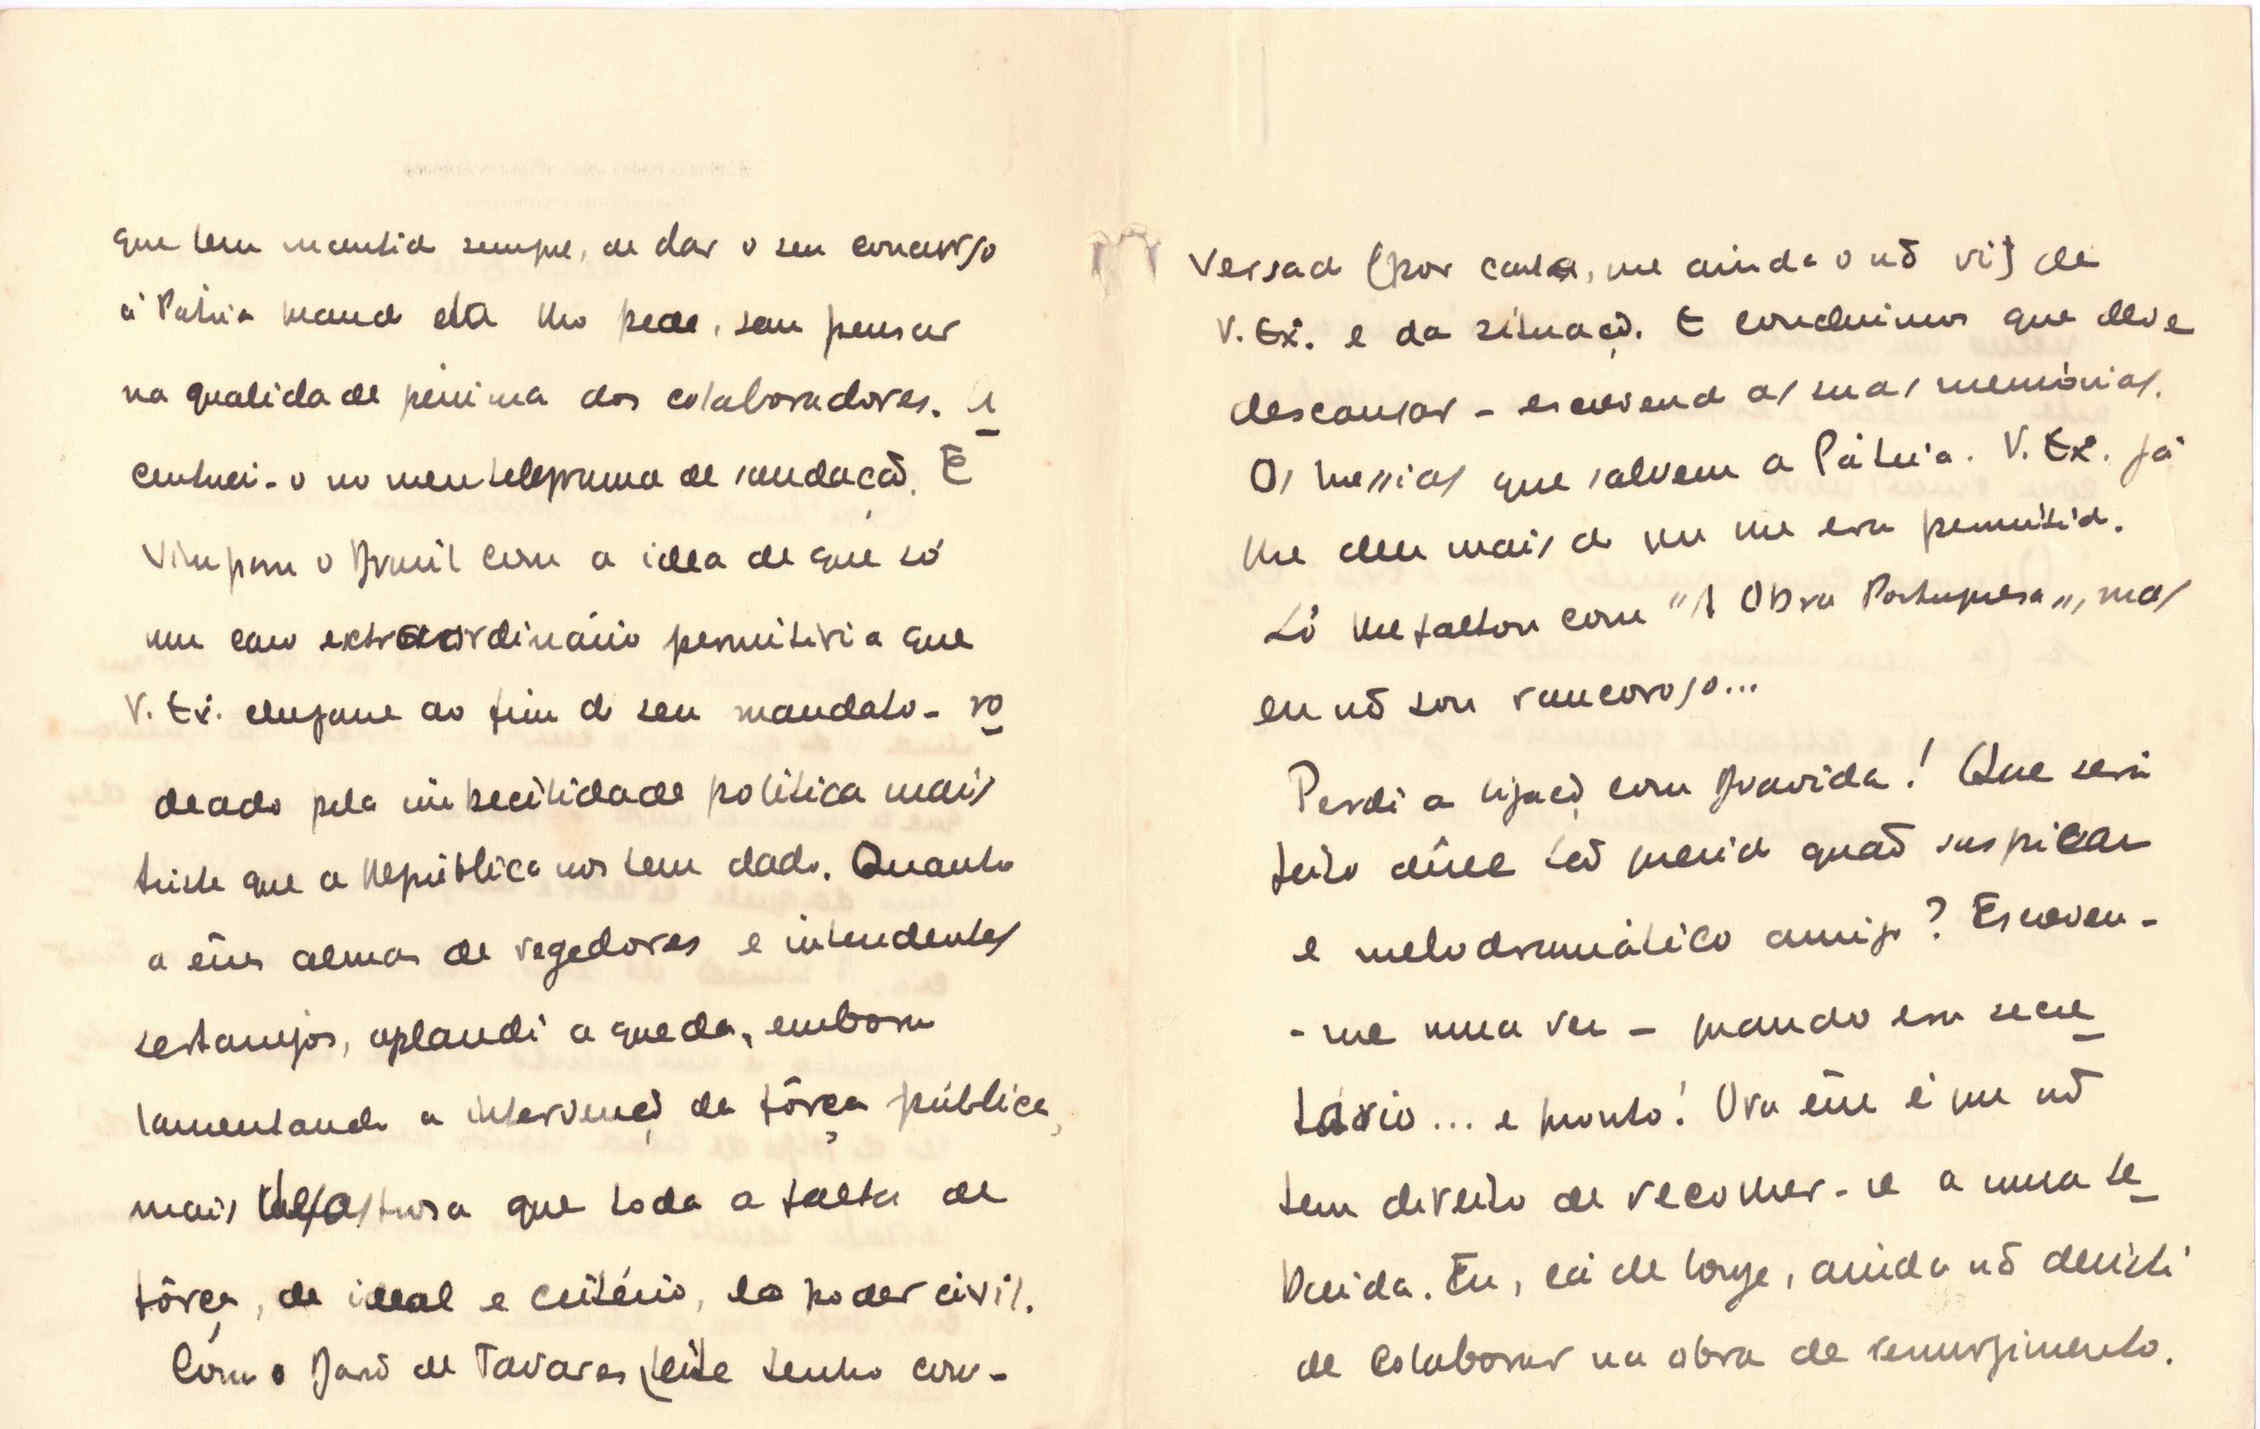 que tem mantido sempre, de dar o seu concurso
à Pátria quando esta lho pede, sem pensar
na qualidade péssima dos colaboradores. A
centuei-o no meu telegrama de saudação. E
vim para o Brasil com a idea de que só
um caso extraordinário permitiria que
V. Ex. chegasse ao fim do seu mandato - ro
deado pela imbecilidade política mais
triste que a República nos tem dado. Quanto
a êsses almas de regedores e intendentes
sertanejos, aplaudi a queda, embora
lamentando a intervenção da fôrça pública,
mais desastrosa que toda a falta de
fôrça, de ideal e critério, do poder civil.
Com o Barão de Tavares Leite tenho con-
versado (por carta, que ainda o não vi) de
V. Ex. e da situação. E concluimos que deve
descansar - escrevendo as suas memórias.
Os messias que salvem a Pátria. V. Ex. já
lhe deu mais do que lhe era permitido.
Só lhe faltou com "A Obra Portuguesa", mas
eu não sou rancoroso...
Perdi a ligação com Bravida! Que será
feito dêsse tão querido quão suspicaz
e melodramático amigo? Escreveu-
-me uma vez - quando era secre
tário... e pronto! Ora êsse é que não
tem direito de recolher-se a uma Te
baida. Eu, cá de longe, ainda não desisti
de colaborar na obra de ressurgimento.